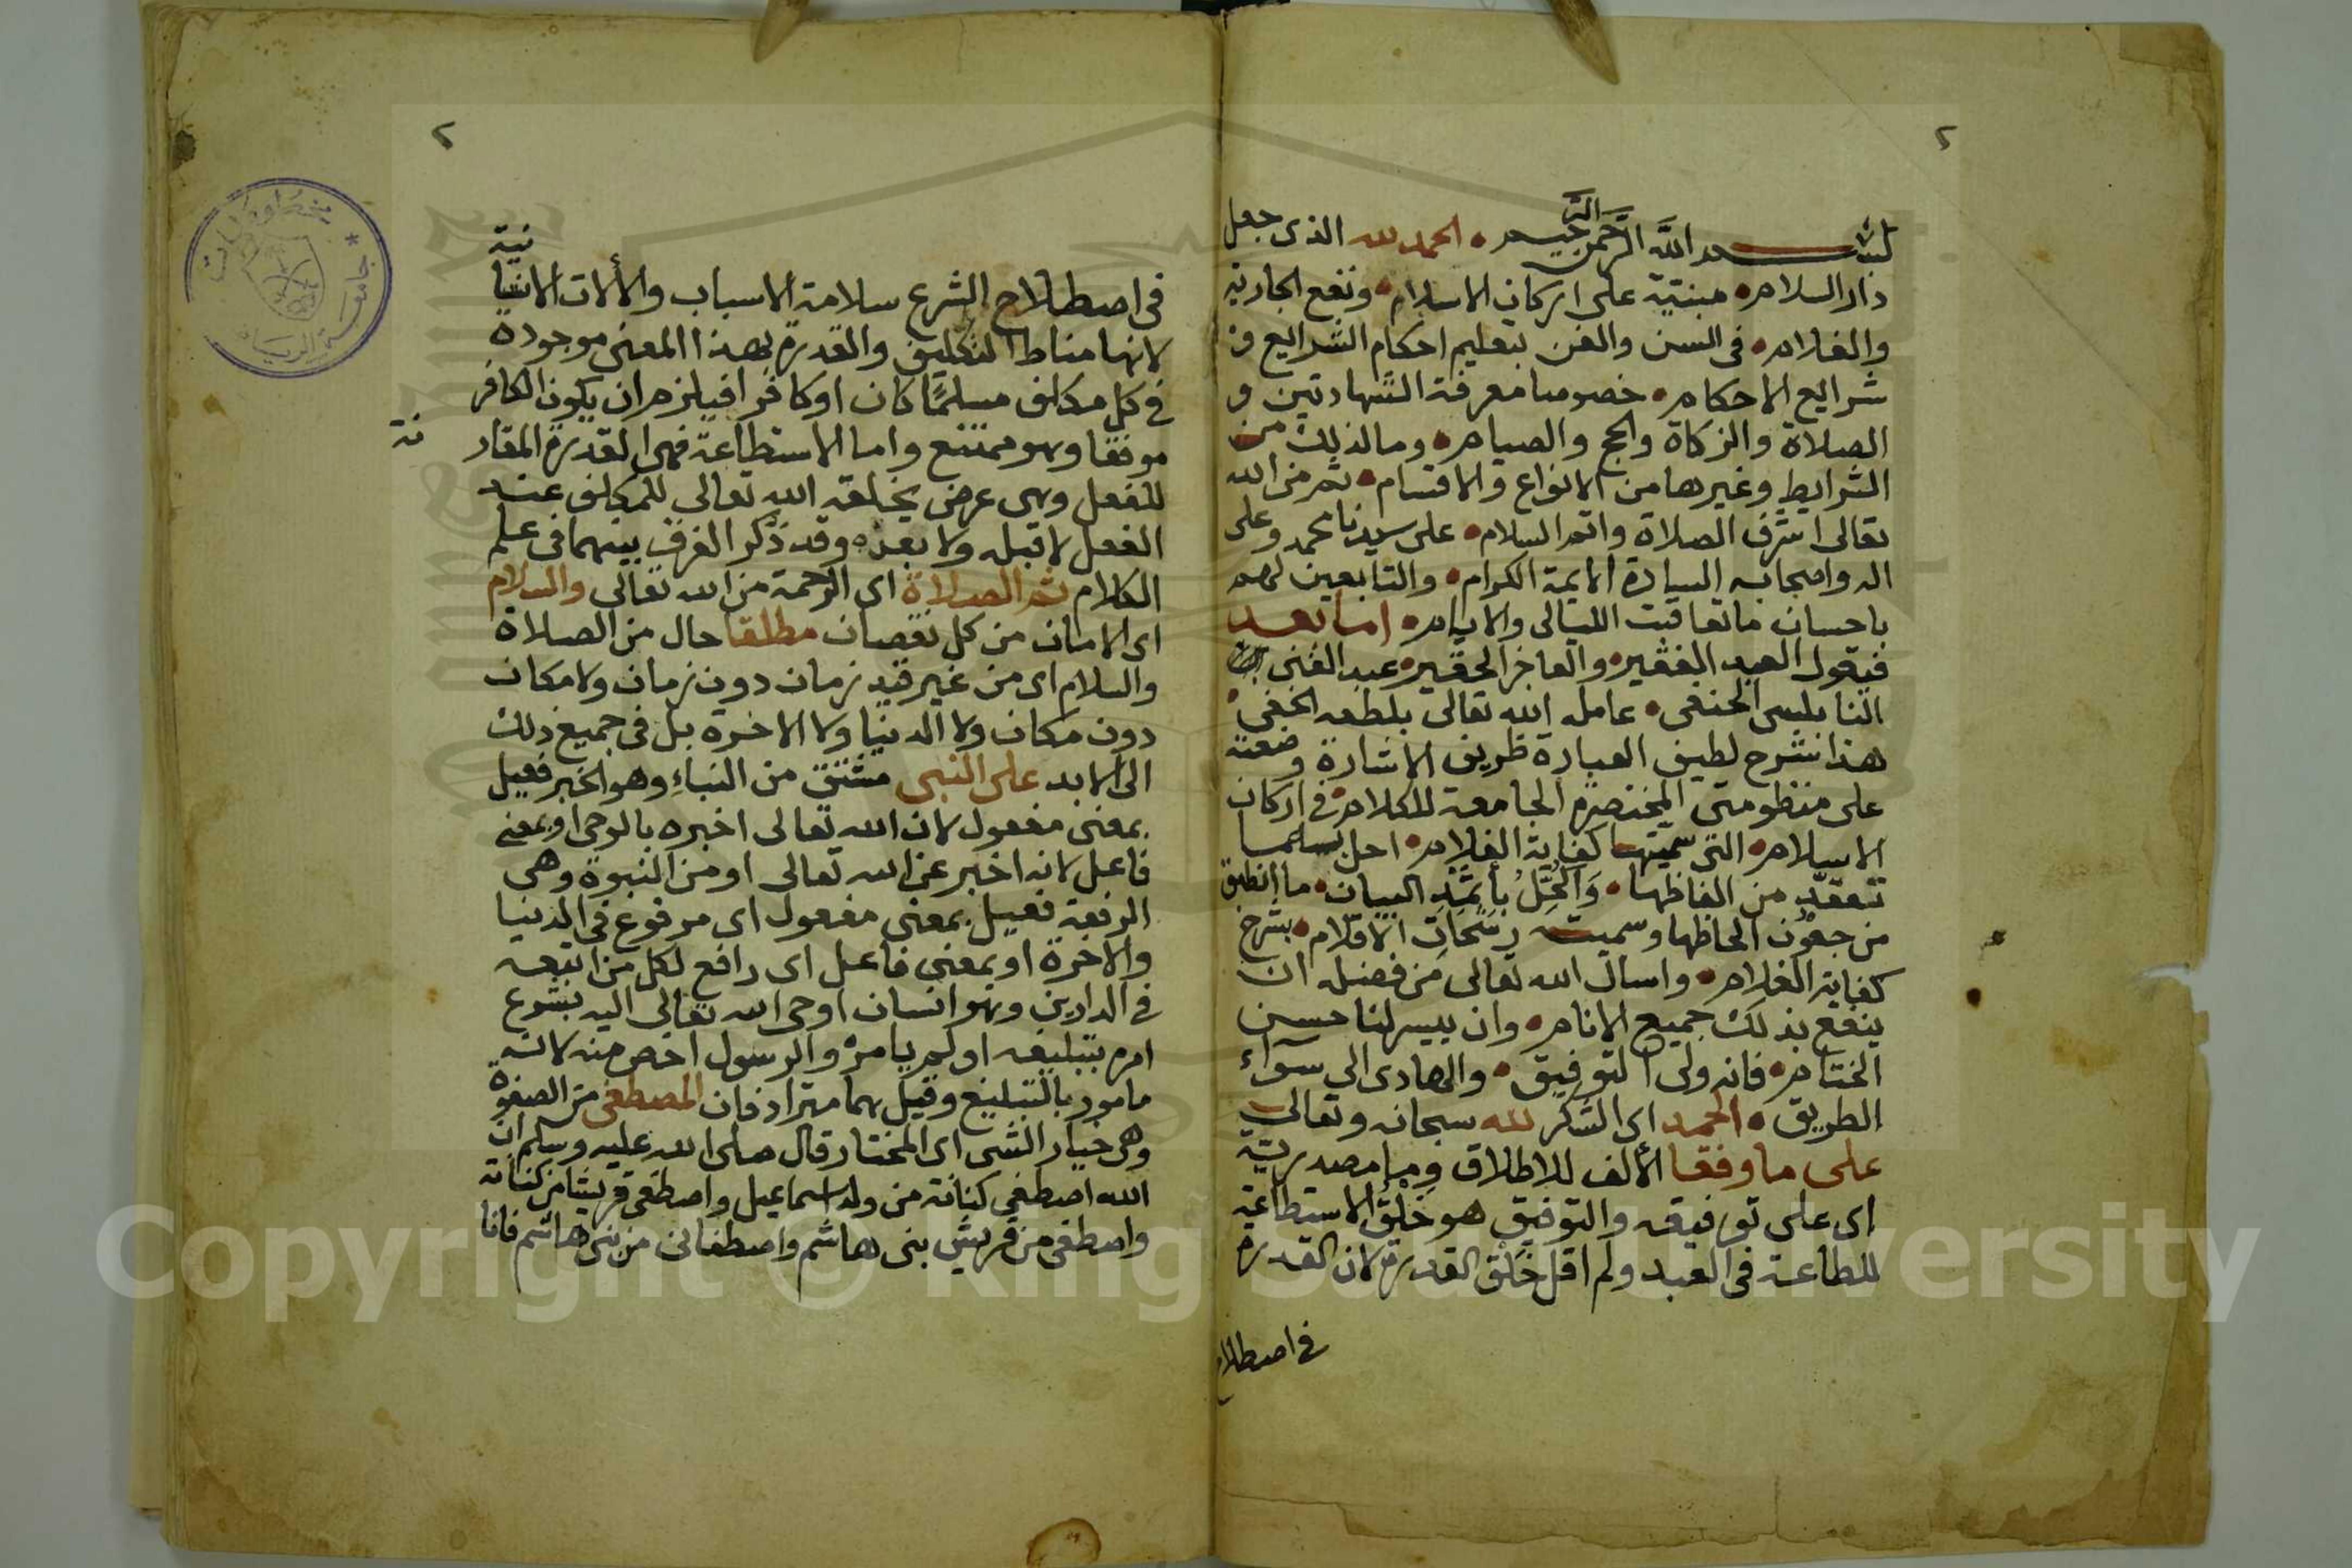 ٢
بسم الله الرحمن الرحيم • الحمد لله الذي جعل
دار السلام • مبنية على اركان الاسلام • ونفع الجارية
والغلام • في السنن والفرض بتعليم احكام الشرايع و
شرايع الاحكام • خصوصا معرفة الشهادتين و
الصلاة والزكاة والحج والصيام • وما لذلك من
الشرايط وغيرها من الانواع والاقسام • ثم من الله
تعالى اشرف الصلاة واتم السلام • على سيدنا محمد وعلى
اله واصحابه السادة الايمة الكرام • والتابعين لهم
باحسان ما تعاقبت الليالى والايام • اما بعد
فيقول العبد الفقير • والعاجز الحقير • عبد الغنى
النابلسى الحنفى • عامله الله تعالى بلطفه الخفى •
هذا شرح لطيف العبارة ظريف الاشارة وضعته
على منظومتى المختصرة الجامعة للكلام • في اركان
الاسلام • التى سميتها كفاية الغلام • احل به ما
تعقد من الفاظها • واكحل باثمد البيان • ما انطبق
من جفون الحاظها وسميته رشحات الاقلام • بشرح
كفاية الغلام • واسال الله تعالى من فضله ان
ينفع بذلك جميع الانام • وان ييسر لنا حسن
الختام • فانه ولى التوفيق • والهادى الى سوآء
الطريق • الحمد اى الشكر لله سبحانه وتعالى
على ما وفقا الألف للاطلاق وما مصدرية
اى على توفيقه والتوفيق هو خلق الاستطاعة
للطاعة فى العبد ولم اقل خلق القدرة لان القدرة
في اصطلاح
٢
فى اصطلاح الشرع سلامة الاسباب والألات الانسانية
لانها مناط التكليف والقدرة بهذا المعنى موجودة
في كل مكلف مسلمًا كان او كافرا فيلزم ان يكون الكافر
موفقا وهو ممتنع واما الاستطاعة فهى القدرة المقارنة
للفعل وهى عرض يخلقه الله تعالى للمكلف عند
الفعل لا قبله ولا بعده وقد ذكر الفرق بينهما فى علم
الكلام ثم الصلاة اى الرحمة من الله تعالى والسلام
اى الامان من كل نقصان مطلقا حال من الصلاة
والسلام اى من غير قيد زمان دون زمان ولا مكان
دون مكان ولا الدنيا ولا الاخرة بل فى جميع ذلك
الى الابد على النبى مشتق من النباء وهو الخبر فعيل
بمعنى مفعول لان الله تعالى اخبره بالوحى او بمعنى
فاعل لانه اخبر عن الله تعالى او من النبوة وهى
الرفعة فعيل بمعنى مفعول اى مرفوع فى الدنيا
والاخرة او بمعنى فاعل اى رافع لكل من اتبعه
في الدارين وهو انسان اوحى الله تعالى اليه بشرع
امره بتبليغه او لم يامره والرسول اخص منه لانه
مامور بالتبليغ وقيل هما مترادفان المصطفى من الصفوة
وهى خيار الشى اى المختار قال صلى الله عليه وسلم ان
الله اصطفى كنانة من ولد اسماعيل واصطفى قريشا من كنانة
واصطفى من قريش بنى هاشم واصطفانى من بنى هاشم فانا
جامعة الرياض * مخطوطات
Copyright © King Saud University